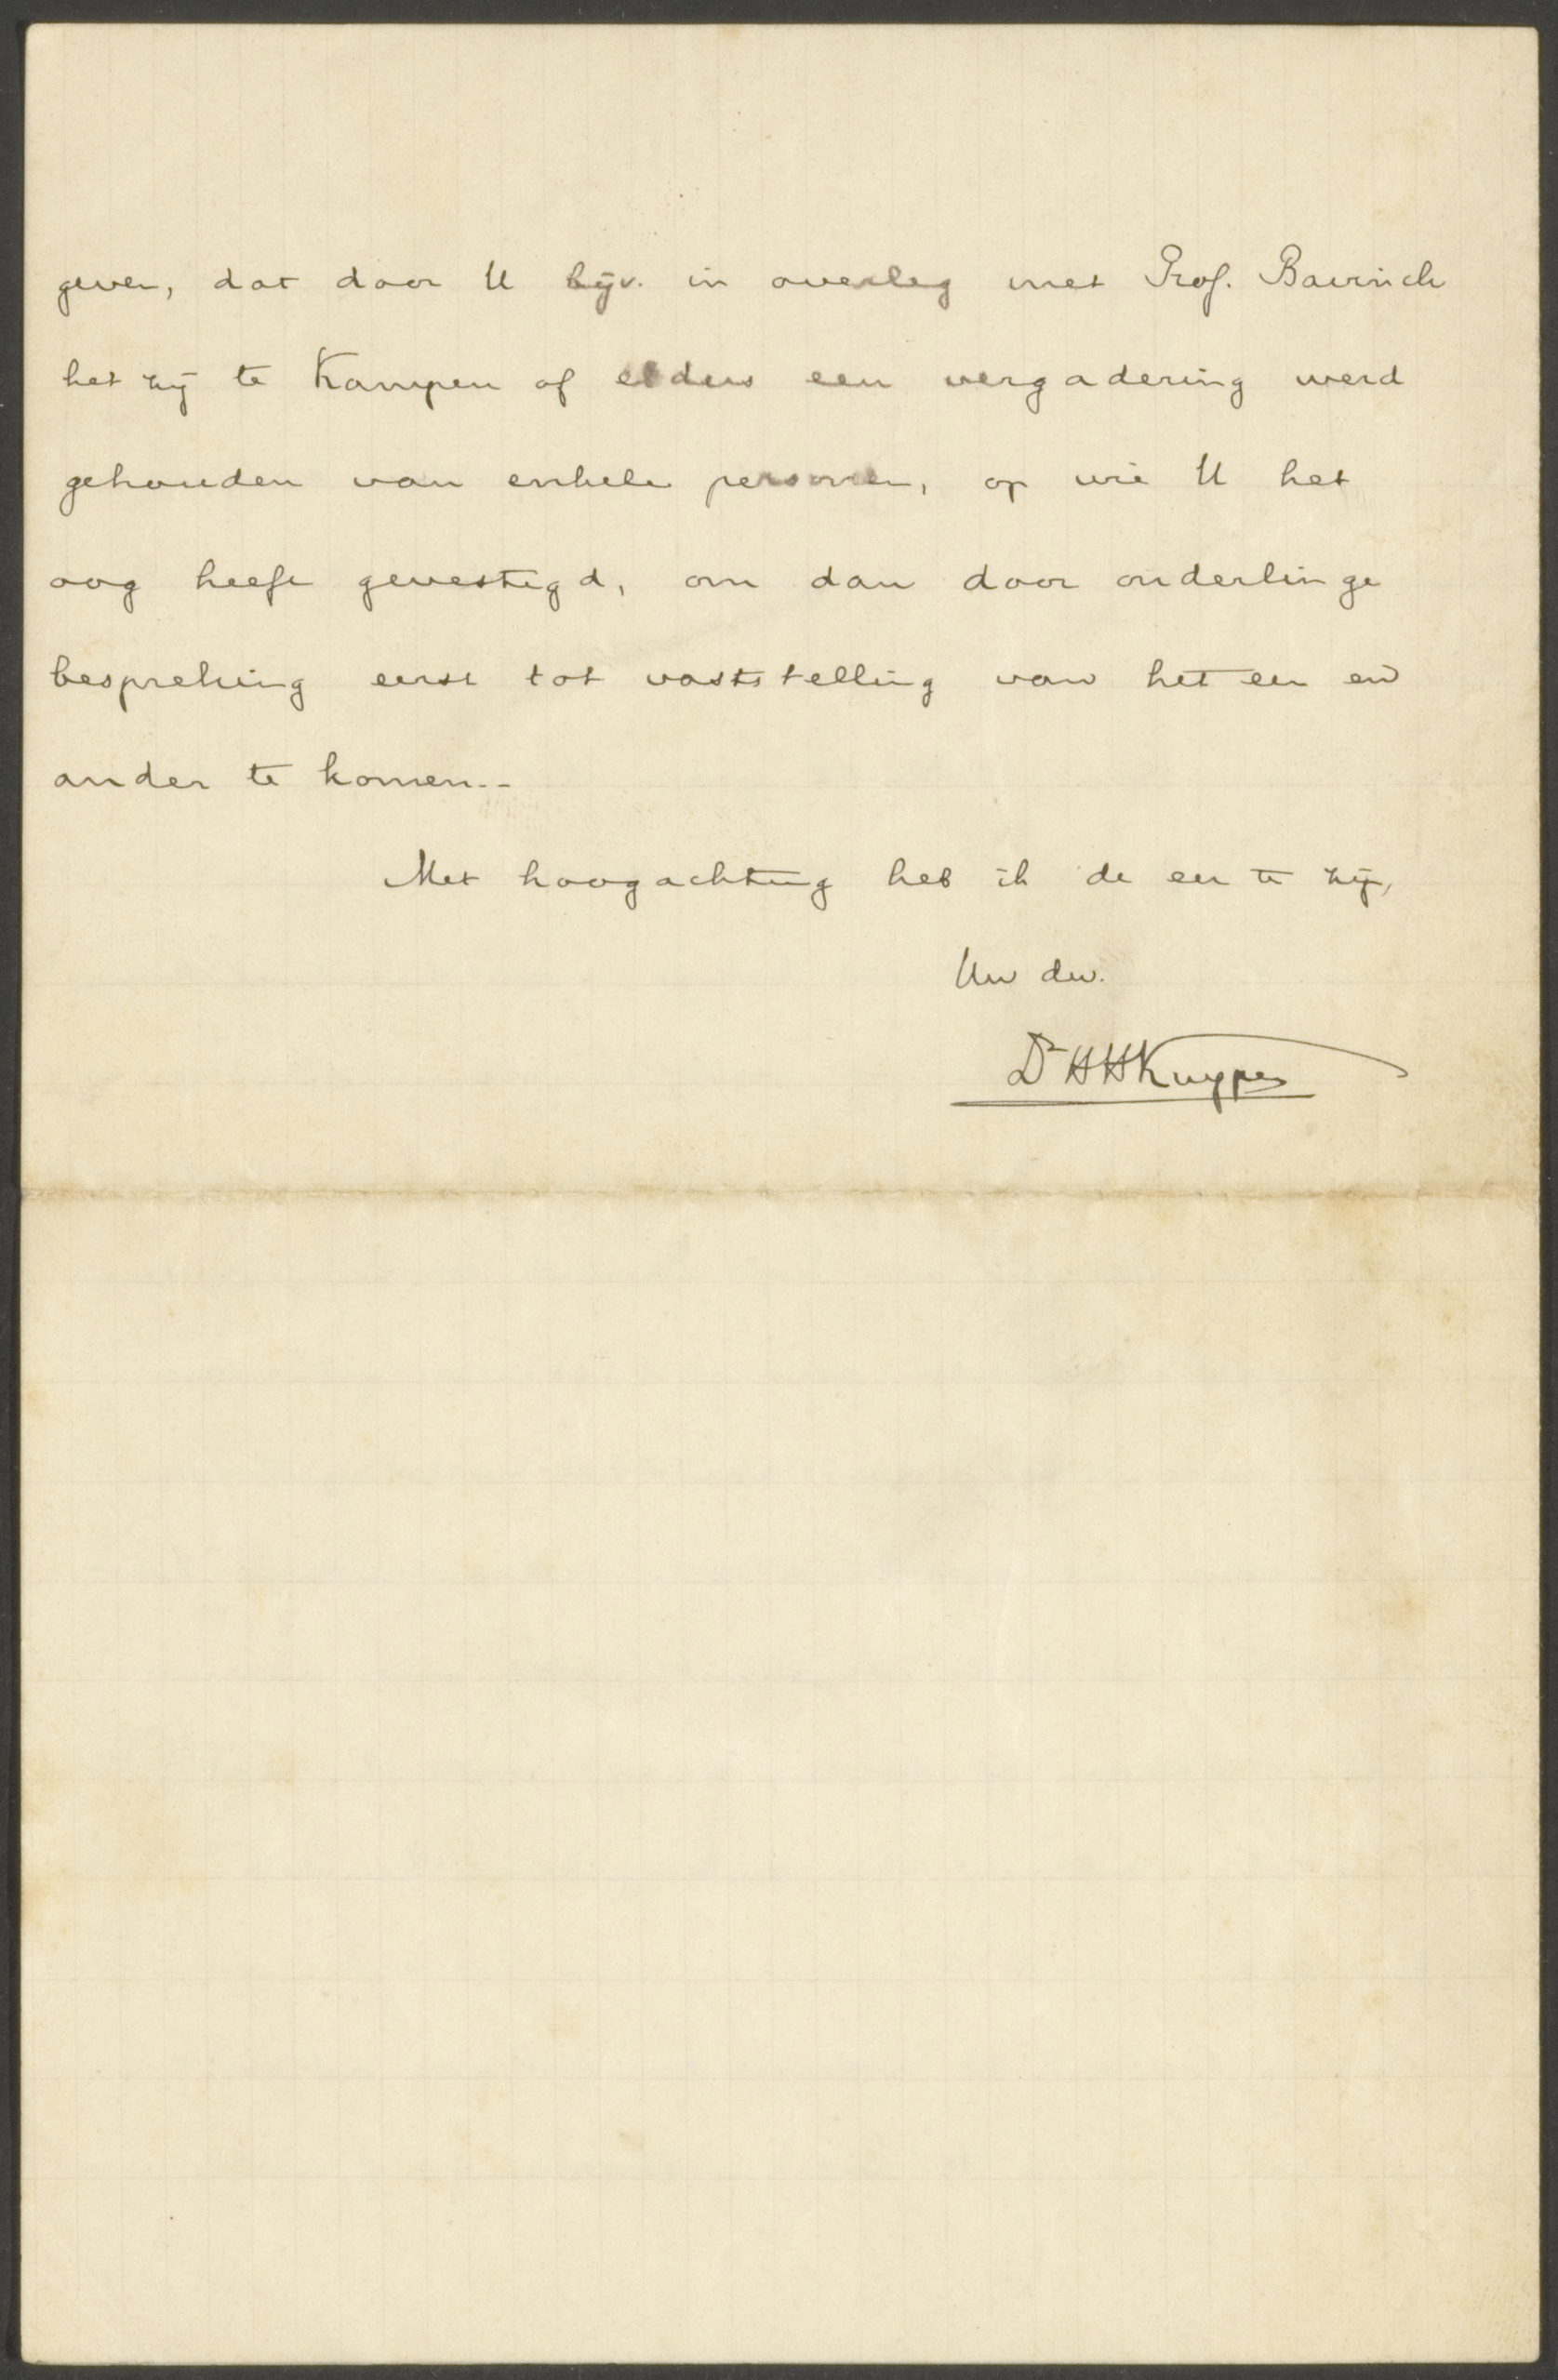 geven, dat door U bijv. in overleg met Prof. Bavinck
het zij te Kampen of elders een vergadering werd
gehouden van enkele personen, op wie U het
oog heeft gevestigd, om dan door onderlinge
bespreking eerst tot vaststelling van het een en
ander te komen.-
Met hoogachting heb ik de eer te zijn,
Uw dw.
Dr HHKuyper